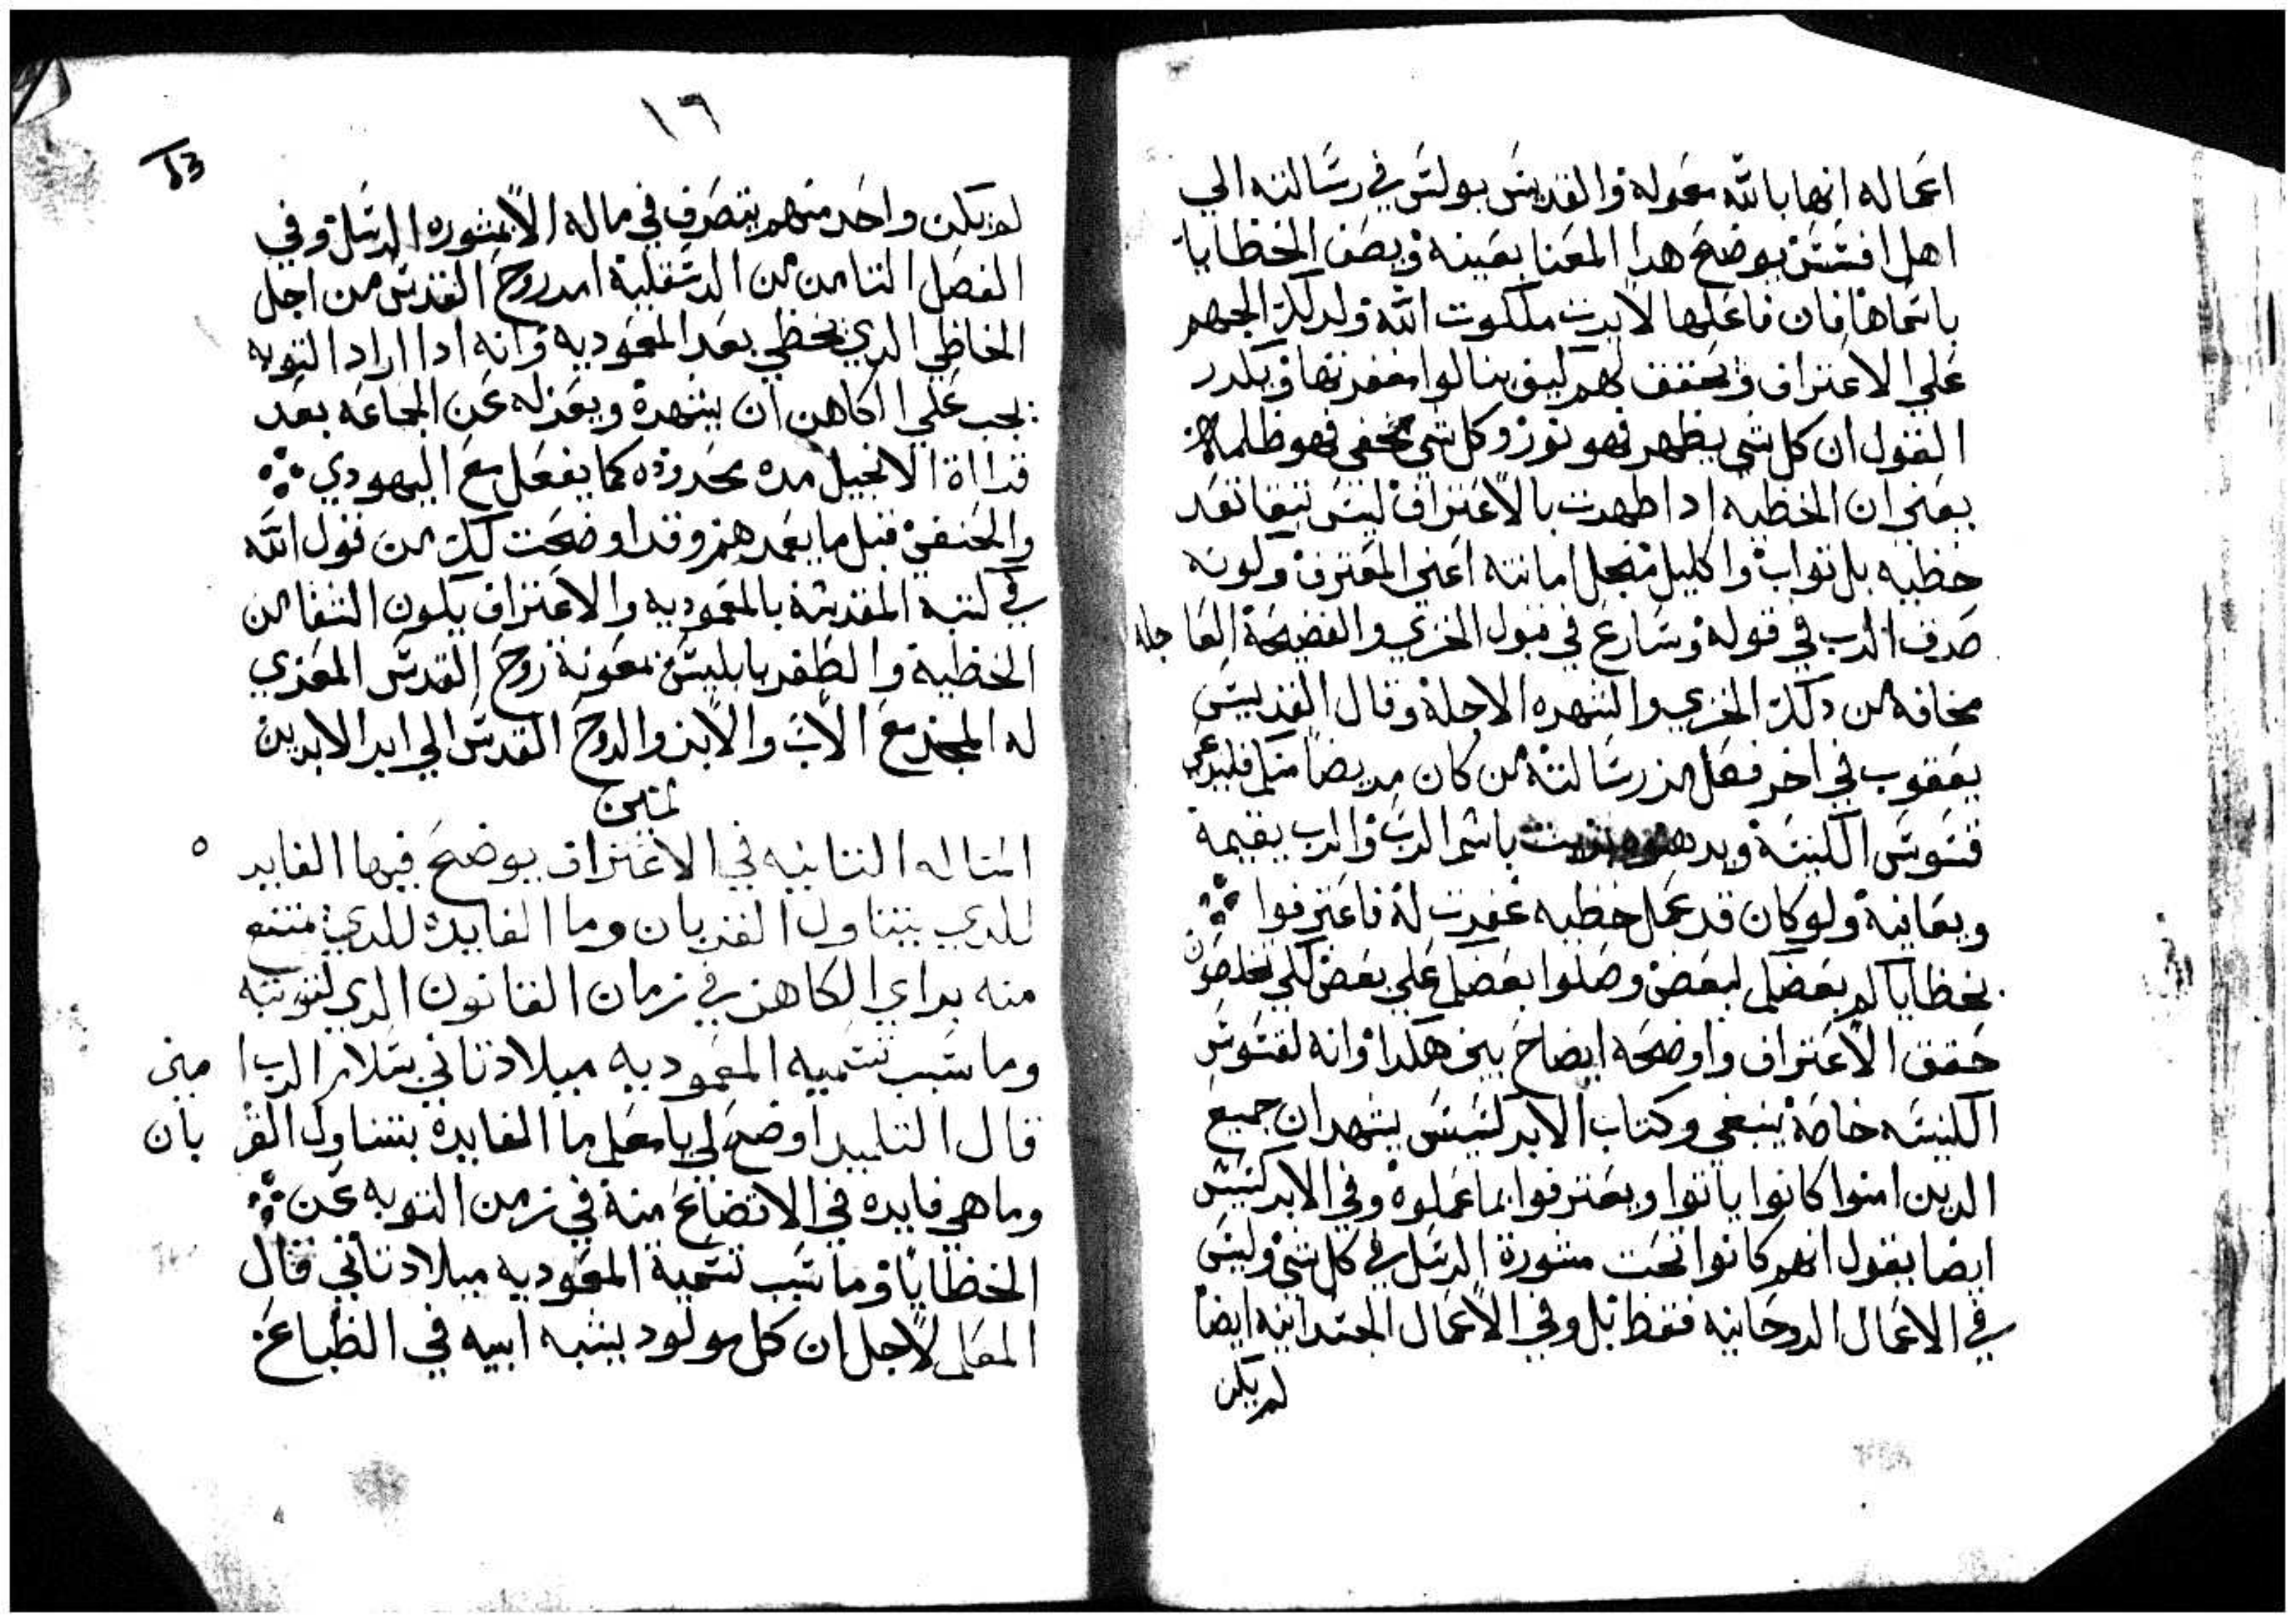 اعماله انها بالله معموله والقديس بولس في رسالته الي
اهل افسس يوضح هدا المعنا بعينه ويصف الخطايا
باسماها فان فاعلها لا يرت ملكوت الله ولدلك الجيهم
علي الاعتراف وتحقق لهم ليف ينالوا مغفرتها ويكرر
القول ان كل شي يظهر فهو نور وكل شي يخفي فهو ظلمه
يعني ان الخطيه ادا ظهرت بالاعتراف ليس تبقا تعد
خطيه بل تواب واكليل منجل امانته اعني المعترف وكونه
صدق الرب في قوله وسارع في قبول الخزي والفضيحة العاجله
مخافه من دلك الخزي والشهره الاجلة وقال القديس
يعقوب في اخر فصل من رسالته من كان مريضا منكم فليدعي
قسوس الكنيسة ويدهنوه بزيت باسم الرب والرب يقيمة
ويعافيه ولو كان قد عمل خطيه غفرت له فاعترفوا
بخطاياكم بعضكم لبعض وصلوا بعضكم علي بعض لكي تخلصون
حقق الاعتراف واوضحه ايضاح بين هكدا وانه لقسوس
الكنيسه خاصة ينبغي وكتاب الابركسيس يشهد ان جميع
الدين امنوا كانوا ياتوا ويعترفوا بما عملوه وفي الابركسيس
ايضا يقول انهم كانوا تحت مشورة الرسل في كل شي وليس
في الاعمال الروحانيه فقط بل وفي الاعمال الجسدانيه ايضا
لم يكن
١٦
لم يكن واحد منهم يتصرف في ماله الا بمشوره الرسل وفي
الفصل التامن من الدسقلية امر روح القدس من اجل
الخاطي الدي يخطي بعد المعموديه وانه ادا اراد التوبه
يجب علي الكاهن ان يشهرة ويعزله عن الجماعه بعد
قراة الانجيل مده محدوده كما يفعل مع اليهودي
والحنفي قبل ما يعمدهم وقد اوضحت لك من قول الله
في كتبه المقدسة بالمعموديه والاعتراف يكون الشفا من
الخطية والظفر بابليس بمعونة روح القدس المعزي
له المجد مع الاب والابن والروح القدس الي ابد الابدين
امين
المساله التانيه في الاعتراف يوضح فيها الفايده
للدي يتناول القربان وما الفايدة للدي يمتنع
منه براي الكاهن في زمان القانون الدي لتوبته
وما سبب تسميه المعموديه ميلاد تاني بسلام الرب امين
قال التلميد اوضح لي يا معلم ما الفايدة بتناول القربان
وما هي فايده في الاتضاع منة في زمن التوبه عن
الخطايا وما سبب تسمية المعموديه ميلاد تاني قال
المعلم لاجل ان كل مولود يشبه ابيه في الطباع